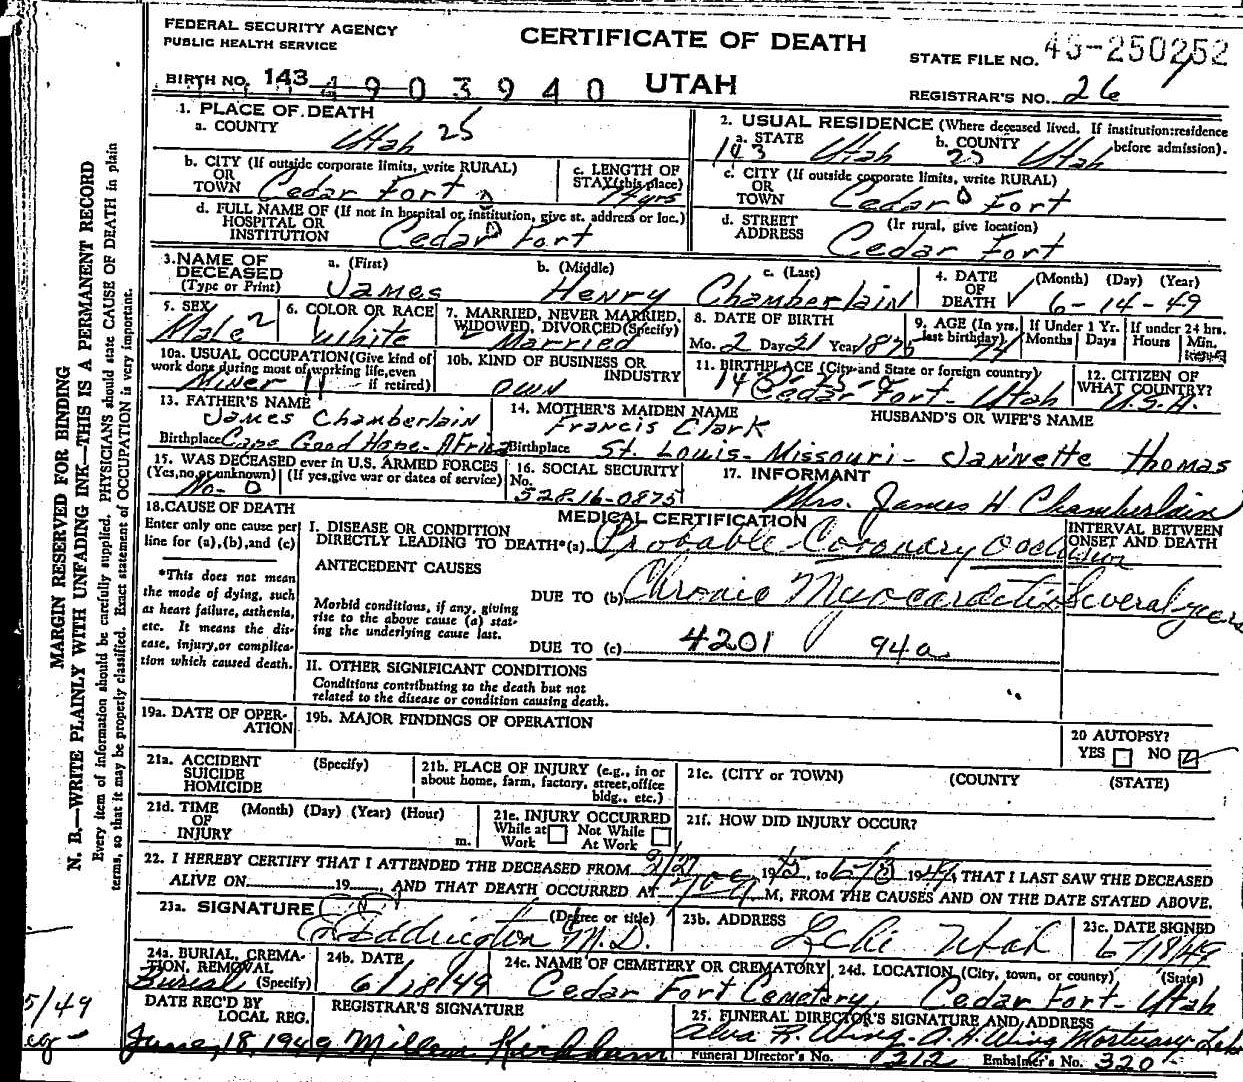 FEDERAL SECURITY AGENCY
PUBLIC HEALTH SERVICE
CERTIFICATE OF DEATH
STATE FILE NO. 45-250252
BIRTH NO. 143 4903940
UTAH
REGISTRAR'S NO. 26
1. PLACE OF DEATH
a. COUNTY Utah 25
2. USUAL RESIDENCE (Where deceased lived. If institution:residence before admission).
a. STATE 143 Utah b. COUNTY 25 Utah
b. CITY (If outside corporate limits, write RURAL)
OR
TOWN Cedar Fort
c. LENGTH OF
STAY (this place)
74 yrs
c. CITY (If outside corporate limits, write RURAL)
OR
TOWN Cedar Fort
d. FULL NAME OF (If not in hospital or institution, give st. address or loc.)
HOSPITAL OR
INSTITUTION Cedar Fort
d. STREET (If rural, give location)
ADDRESS Cedar Fort
3. NAME OF
DECEASED
(Type or Print)
a. (First) James
b. (Middle) Henry
c. (Last) Chamberlain
4. DATE
OF
DEATH
(Month) (Day) (Year)
6-14-49
5. SEX
Male 2
6. COLOR OR RACE
White
7. MARRIED, NEVER MARRIED,
WIDOWED, DIVORCED (Specify)
Married
8. DATE OF BIRTH
Mo. 2 Day 21 Year 1875
9. AGE (In yrs.
last birthday)
74
If Under 1 Yr.
Months Days
If under 24 hrs.
Hours Min.
10a. USUAL OCCUPATION (Give kind of
work done during most of working life, even
if retired)
Miner 11
10b. KIND OF BUSINESS OR
INDUSTRY
Own
11. BIRTHPLACE (City and State or foreign country)
Cedar Fort - Utah
12. CITIZEN OF
WHAT COUNTRY?
U.S.A.
13. FATHER'S NAME
James Chamberlain
Birthplace Cape Good Hope - Africa
14. MOTHER'S MAIDEN NAME
Francis Clark
Birthplace St. Louis - Missouri -
HUSBAND'S OR WIFE'S NAME
Jannette Thomas
15. WAS DECEASED ever in U.S. ARMED FORCES
(Yes, no, or unknown) (If yes, give war or dates of service)
No - 0
16. SOCIAL SECURITY
No.
528-16-0875
17. INFORMANT
Mrs. James H Chamberlain
18. CAUSE OF DEATH
Enter only one cause per
line for (a), (b), and (c)
*This does not mean
the mode of dying, such
as heart failure, asthenia,
etc. It means the dis-
ease, injury, or complica-
tion which caused death.
MEDICAL CERTIFICATION
INTERVAL BETWEEN
ONSET AND DEATH
I. DISEASE OR CONDITION
DIRECTLY LEADING TO DEATH*(a) Probable Coronary occlusion
ANTECEDENT CAUSES
Morbid conditions, if any, giving
rise to the above cause (a) stat-
ing the underlying cause last.
DUE TO (b) Chronic Myocarditis Several years
DUE TO (c) 4201 94a
II. OTHER SIGNIFICANT CONDITIONS
Conditions contributing to the death but not
related to the disease or condition causing death.
19a. DATE OF OPER-
ATION
19b. MAJOR FINDINGS OF OPERATION
20 AUTOPSY?
YES NO
21a. ACCIDENT (Specify)
SUICIDE
HOMICIDE
21b. PLACE OF INJURY (e.g., in or
about home, farm, factory, street, office
bldg., etc.)
21c. (CITY or TOWN) (COUNTY) (STATE)
21d. TIME (Month) (Day) (Year) (Hour)
OF
INJURY m.
21e. INJURY OCCURRED
While at Not While
Work At Work
21f. HOW DID INJURY OCCUR?
22. I HEREBY CERTIFY THAT I ATTENDED THE DECEASED FROM 19, to 19, THAT I LAST SAW THE DECEASED
ALIVE ON 19 AND THAT DEATH OCCURRED AT M, FROM THE CAUSES AND ON THE DATE STATED ABOVE.
23a. SIGNATURE (Degree or title)
Eddington M.D.
23b. ADDRESS
Lehi Utah
23c. DATE SIGNED
6/18/49
24a. BURIAL, CREMA-
TION, REMOVAL
(Specify)
Burial
24b. DATE
6/18/49
24c. NAME OF CEMETERY OR CREMATORY
Cedar Fort Cemetery
24d. LOCATION (City, town, or county) (State)
Cedar Fort - Utah
DATE REC'D BY
LOCAL REG.
June, 18, 1949
REGISTRAR'S SIGNATURE
Kirkham
25. FUNERAL DIRECTOR'S SIGNATURE AND ADDRESS
Alva R. Wing - A.H. Wing Mortuary - Lehi
Funeral Director's No. 212 Embalmer's No. 320
MARGIN RESERVED FOR BINDING
N. B.—WRITE PLAINLY WITH UNFADING INK—THIS IS A PERMANENT RECORD
Every item of information should be carefully supplied. PHYSICIANS should state CAUSE OF DEATH in plain
terms, so that it may be properly classified. Exact statement of OCCUPATION is very important.
5/49